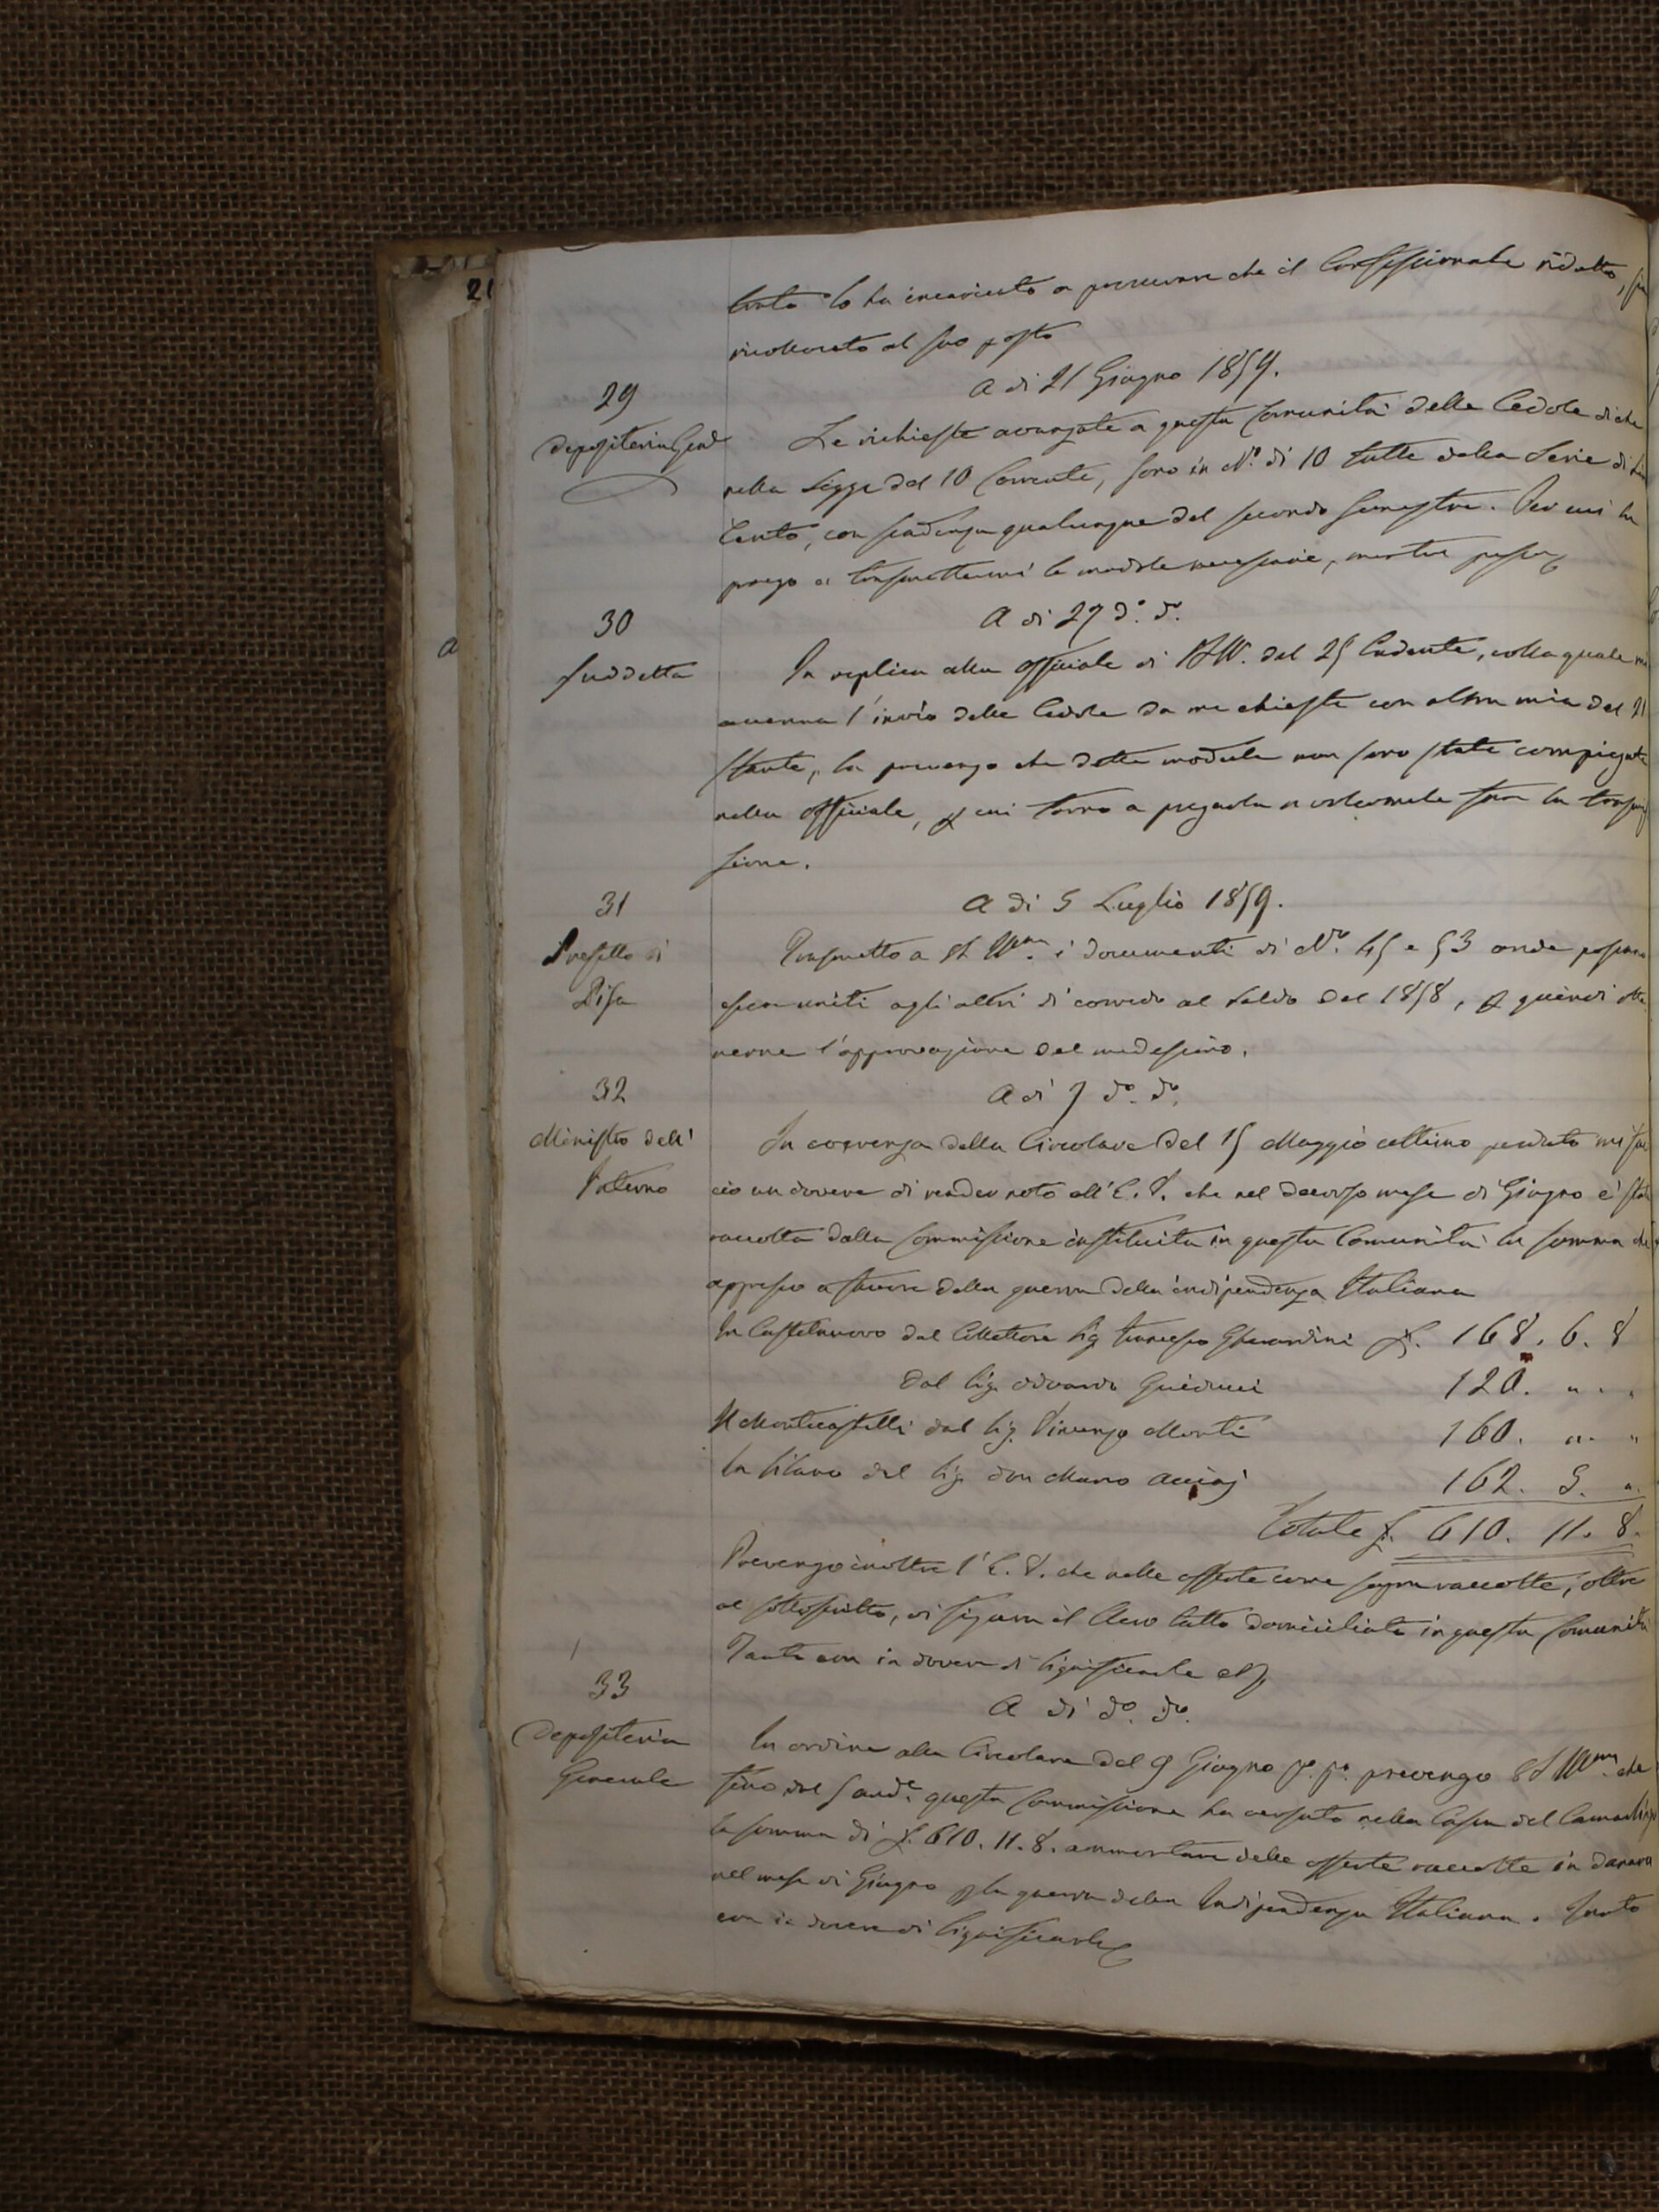 tanto lo ha incaricato a procurare che il Confessionale ridotto, sia
ricollocato al suo posto
29
A di 21 Giugno 1859.
Depositeria Genle
Le richieste avanzate a questa Comunità delle Cedole di che
nella Legge del 10 Corrente, sono in N.º di 10 tutte della Serie di Lire
Cento, con scadenza qualunque del secondo Semestre. Per cui la
prego a trasmettermi le module necessarie, mentre passo
30
A di 27 d.º d.º
Suddetta
In replica alla officiale di del 25 Cadente, colla quale mi
accenna l'invio delle Cedole da me chieste con altra mia del 21
stante, la prevengo che dette module non sono state compiegate
nella officiale, p cui torno a pregarla a volermele fare la trasmis
sione.
31
A di 5 Luglio 1859.
Prefetto di
Pisa
Trasmetto a i documenti di N.º 45 e 53 onde possano
esser uniti agli altri di corredo al Saldo del 1858, e quindi otte
nerne l'approvazione del medesimo.
32
A di 7 d.º d.º
Ministro dell'
Interno
In coerenza della Circolare del 15 Maggio ultimo perduto mi fac
cio un dovere di render noto all'E. V. che nel decorso mese di Giugno è stata
raccolta dalla Commissione instituita in questa Comunità la somma che
appresso a favore della guerra della indipendenza Italiana
In Castelnuovo dal Collettore Sig. Francesco Gherardini £. 168. 6. 8
Dal Sig. Odoardo Guiducci 120. " . "
A Montecastelli dal Sig. Vincenzo Monti 160. " . "
In Silano dal Sig. Don Marco 162. 5. ".
Totale £. 610. 11. 8.
Prevengo inoltre l'E. V. che nelle offerte come sopra raccolte, oltre
al sottoscritto, vi figura il Clero tutto domiciliato in questa Comunità
Tanto era in dovere di significarle
33
A di d.º d.º
Depositeria
Generale
In ordine alla Circolare del 9 Giugno p.º p.º prevengo che
fino dal 5 questa Commissione ha versato nella Cassa del Camarlingo
la somma di £. 610. 11. 8. ammontare delle offerte raccolte in danaro
nel mese di Giugno p la guerra della Indipendenza Italiana. Tanto
era in dovere di significarle